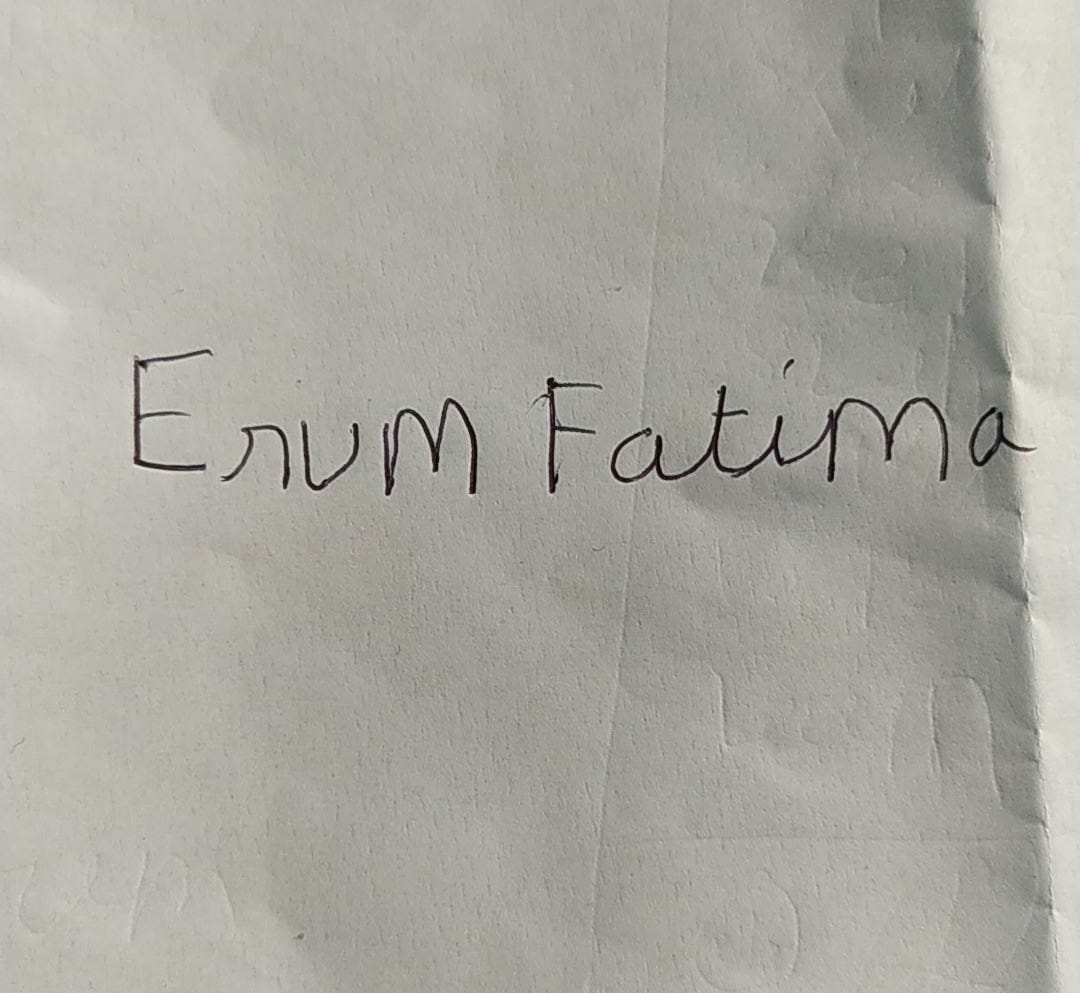 Erum Fatima